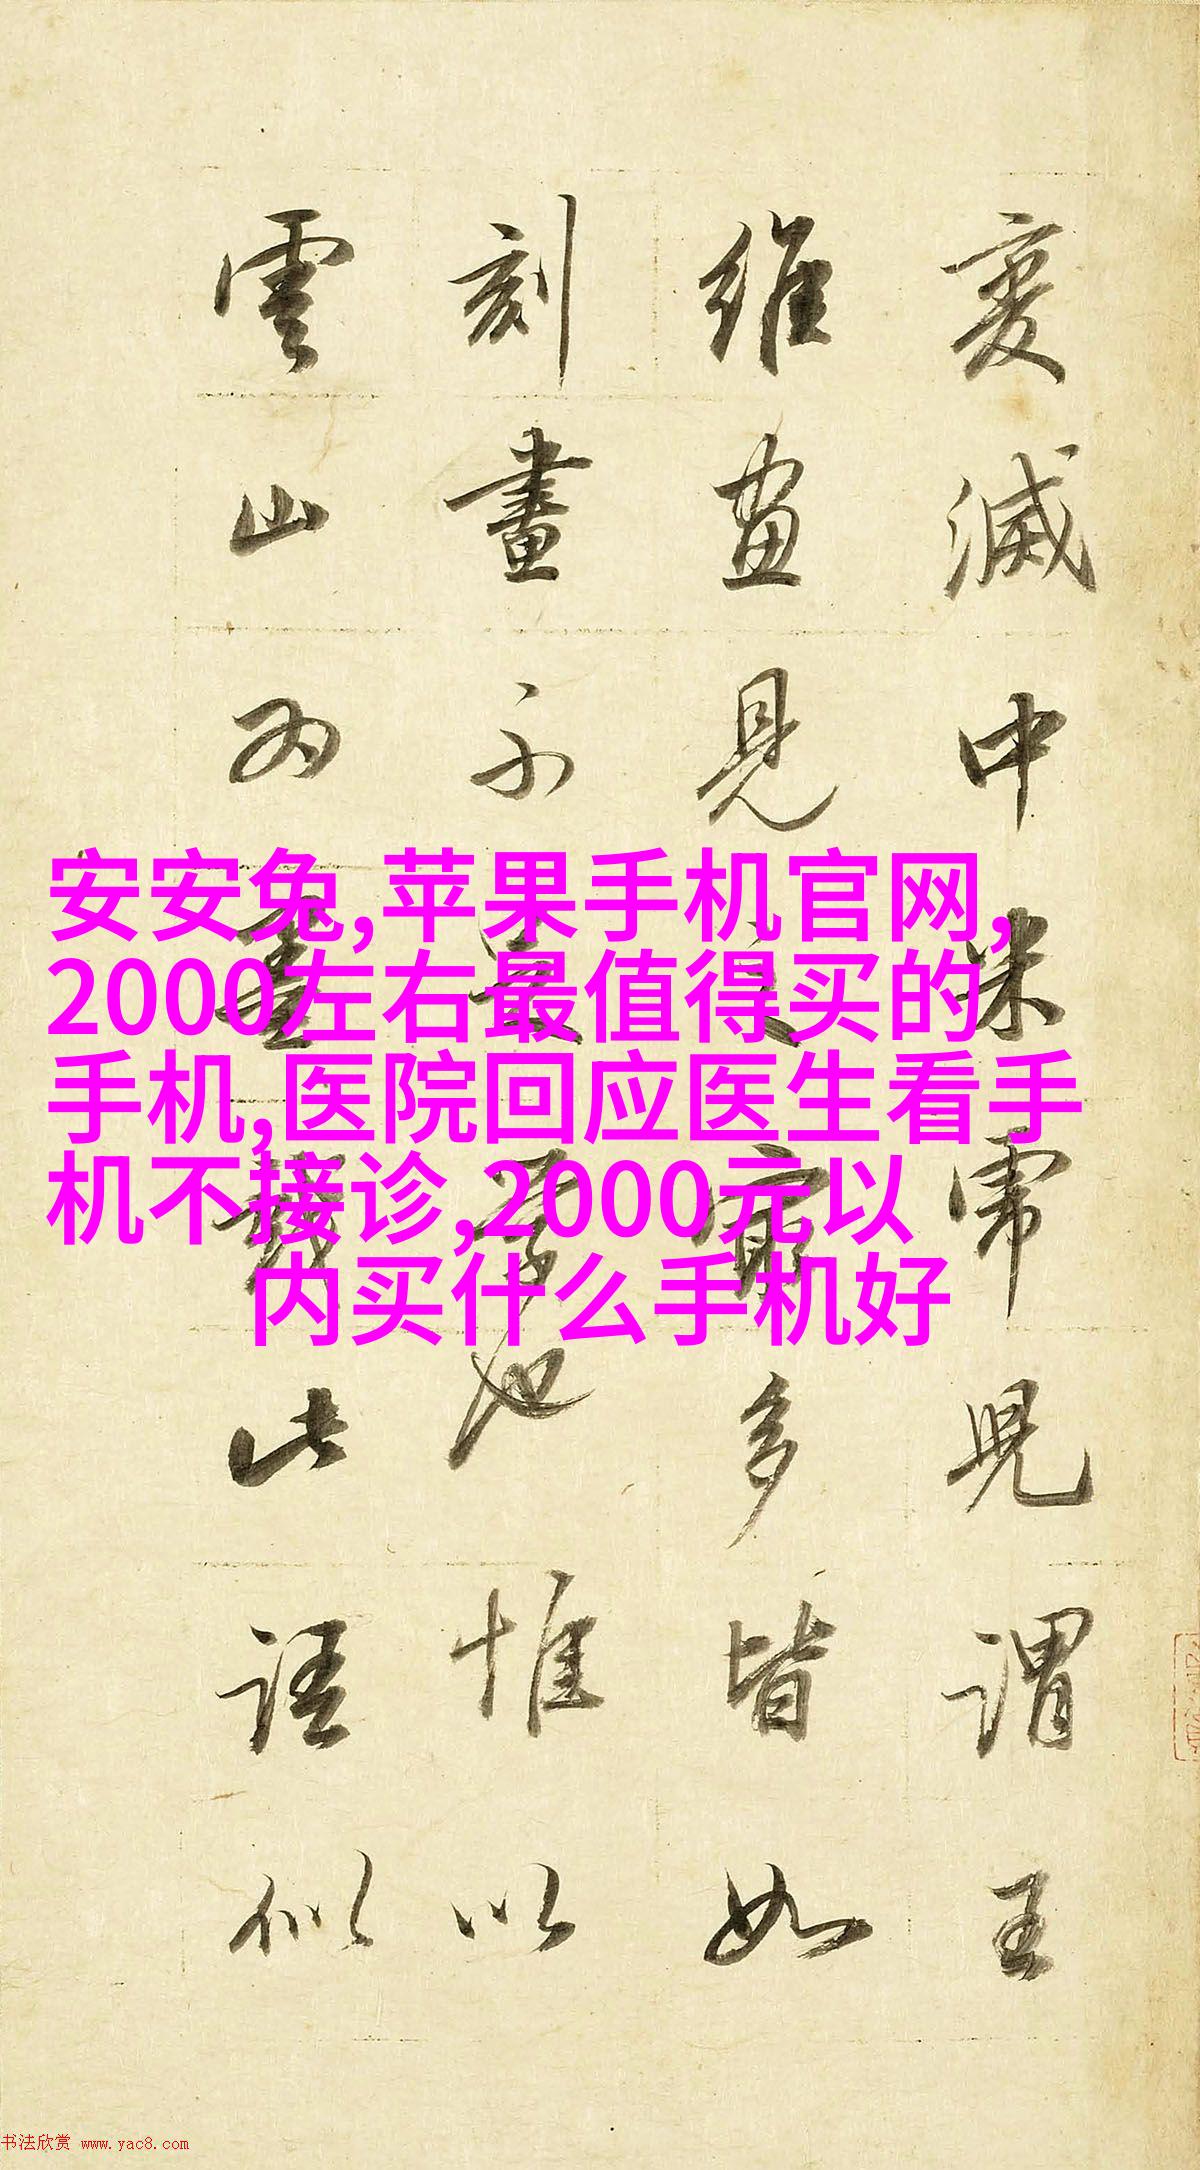 變滅中米常見謂王
維畫見之最多皆如
刻畫不足學也惟以
雲山為墨戲此語似
安安兔,苹果手机官网,
2000左右最值得买的
手机,医院回应医生看手
机不接诊,2000元以
内买什么手机好
书法欣赏 www.yac8.com